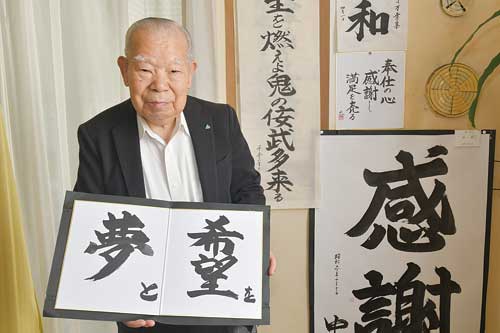 希望を
夢と
を燃えよ鬼の佞武多来る
和
奉仕の心
感謝し
満足を売る
感謝